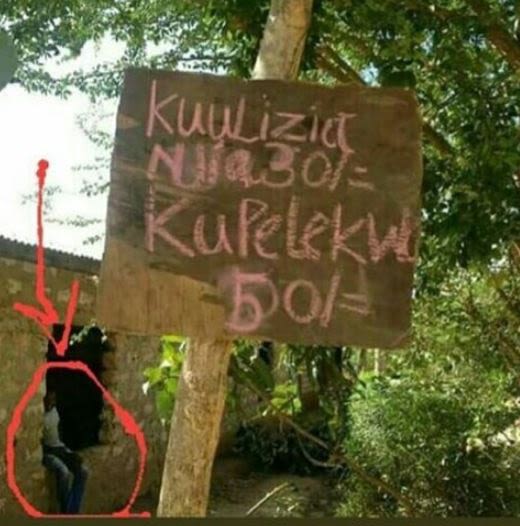 KuuLizia
Njia 30/=
KuPeleKwa
50/=